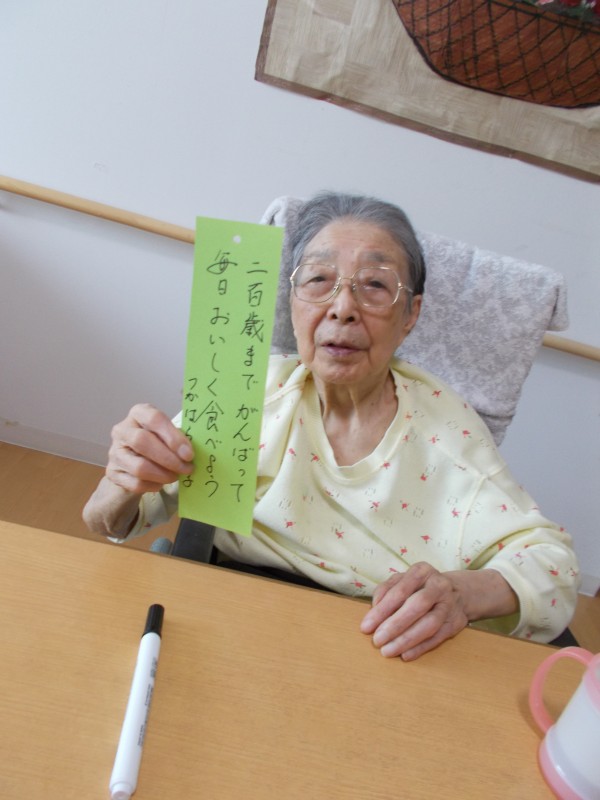 二百歳まで がんばって
毎日 おいしく食べよう